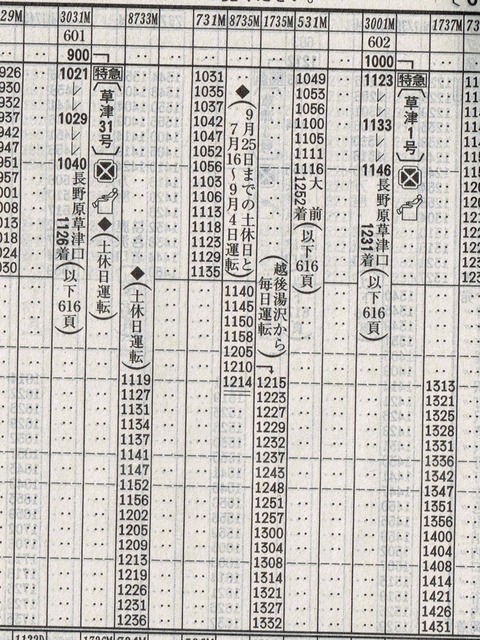 29M 3031M 8733M 731M 8735M 1735M 531M 3001M 1737M 73
601 602
900 1000
926
930
932
937
942
947
951
957
001
008
013
018
024
030
1021
1029
1040
長野原草津口
1126着
(以下616頁)
特急
(草津31号)
◆(土休日運転)
◆(土休日運転)
1119
1127
1131
1134
1137
1141
1147
1152
1156
1202
1205
1209
1213
1219
1226
1231
1236
1031
1035
1037
1042
1047
1052
1056
1103
1106
1113
1118
1123
1129
1135
◆
(9月25日までの土休日と
7月16〜9月4日運転)
1140
1145
1150
1158
1205
1210
1214
(越後湯沢から
毎日運転)
1215
1223
1227
1229
1232
1237
1243
1248
1251
1257
1300
1304
1308
1314
1321
1327
1332
1049
1053
1056
1100
1105
1111
1116
大前
1252着
(以下616頁)
1123
1133
1146
長野原草津口
1231着
(以下616頁)
特急
(草津1号)
1313
1321
1325
1328
1331
1336
1342
1347
1351
1356
1400
1404
1408
1414
1421
1426
1431